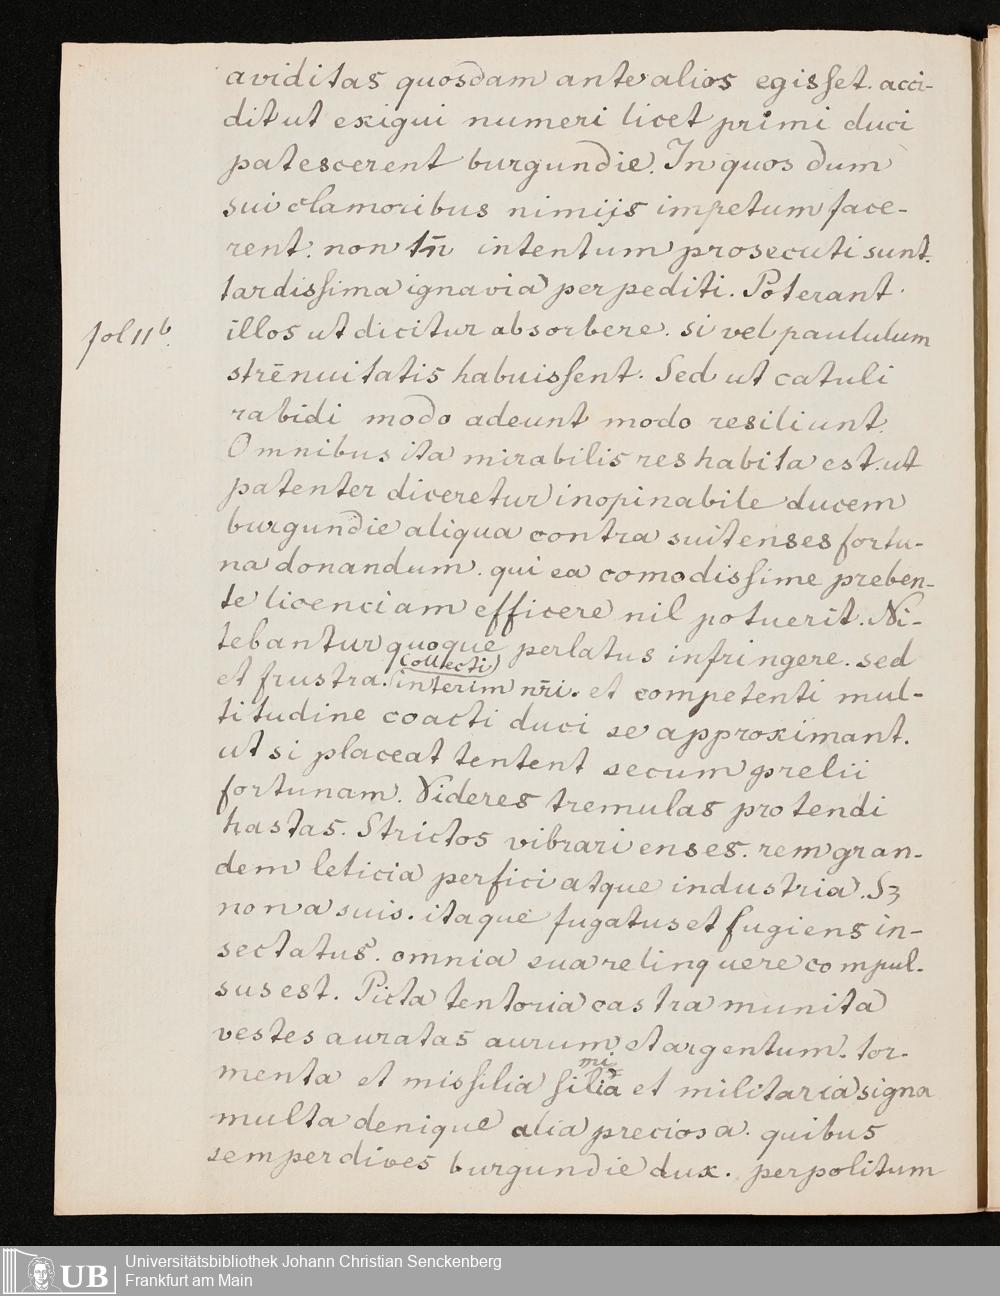 aviditas quosdam ante alios egisset. acci-
dit ut exigui numeri licet primi duci
patescerent burgundie. In quos dum
sui clamoribus nimijs impetum face-
rent. non tn̄ intentum prosecuti sunt.
tardissima ignavia perpediti. Poterant
fol 11 b.
illos ut dicitur absorbere. si vel paululum
strēnuitatis habuissent. Sed ut catuli
rabidi modo adeunt modo resiliunt.
Omnibus ita mirabilis res habita est. ut
patenter diceretur inopinabile ducem
burgundie aliqua contra suitenses fortu-
na donandum. qui ea comodissime preben-
te licenciam efficere nil potuerit. Ni-
tebantur quoque perlatus infringere. sed
collecti
et frustra. interim nr̄i. et competenti mul-
titudine coacti duci se approximant.
ut si placeat tentent secum prelii
fortunam. Videres tremulas protendi
hastas. Strictos vibrari enses. rem gran-
dem leticia perfici atque industria. Sz
non a suis. itaque fugatus et fugiens in-
sectatus. omnia sua relinquere compul-
sus est. Picta tentoria castra munita
vestes auratas aurum et argentum. tor-
mi
menta et missilia silia et militaria signa
multa denique alia preciosa. quibus
semper dives burgundie dux. perpolitum
UB
Universitätsbibliothek Johann Christian Senckenberg
Frankfurt am Main